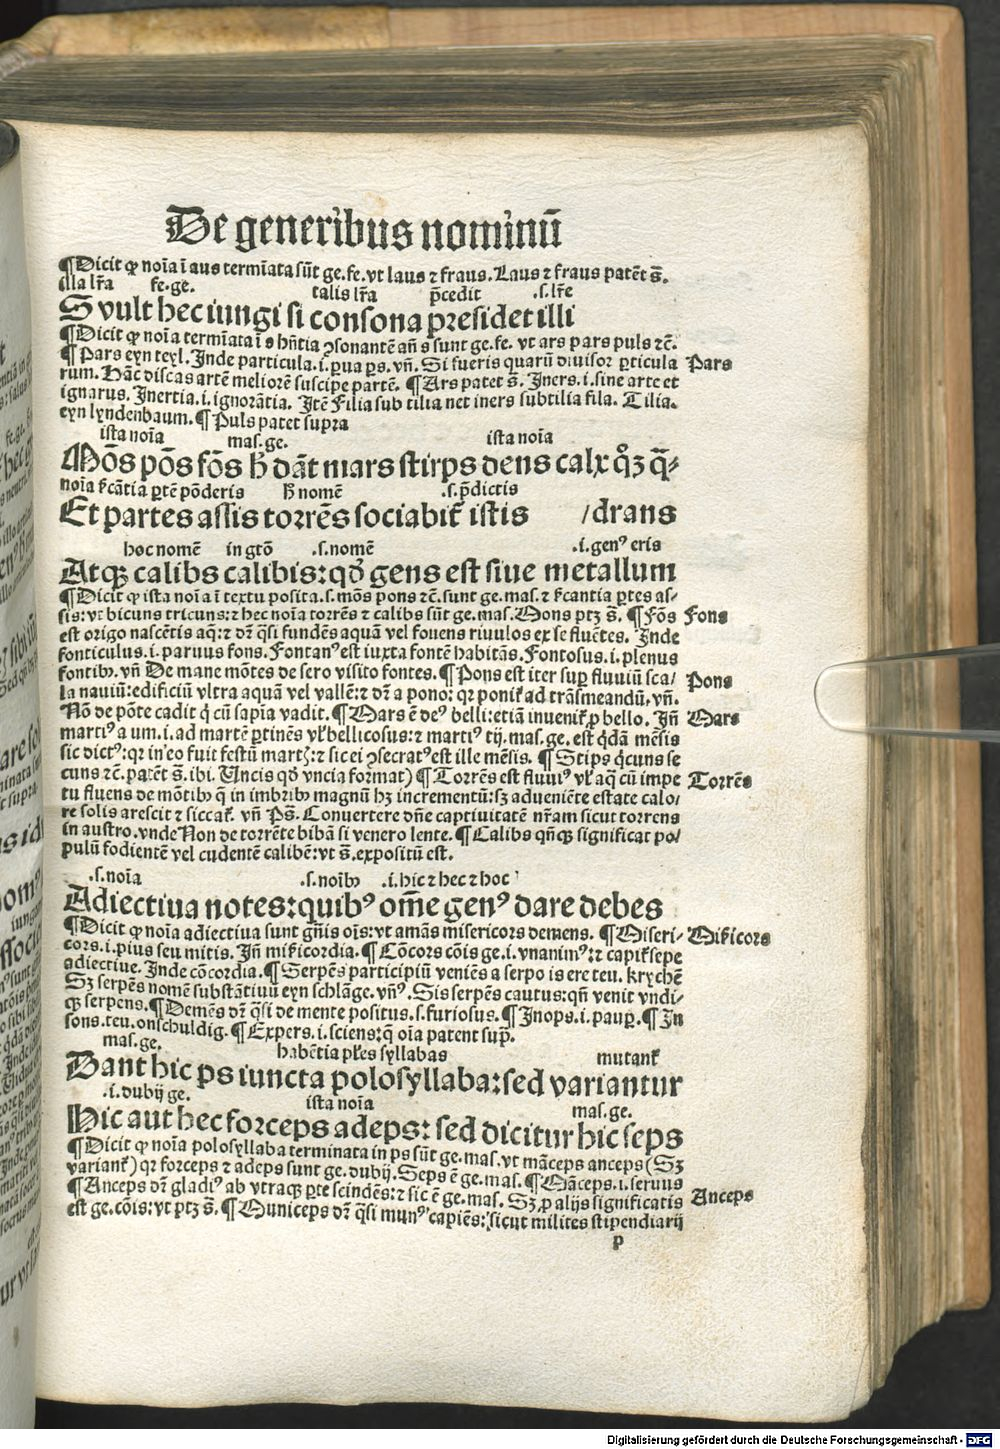 De generibus nominū
¶Dicit ꝙ noīa ī aus termīata sūt ge.fe.vt laus ⁊ fraus.Laus ⁊ fraus patēt s̄.
illa lr̄a fe.ge. talis lr̄a p̄cedit .s.lr̄e
S vult hec iungi si consona presidet illi
¶Dicit ꝙ noīa termīata ī s hn̄tia ꝯsonantē an̄ s sunt ge.fe. vt ars pars puls ⁊c̄.
¶Pars eyn teyl. Inde particula.i.ꝑua ꝑs.vn̄. Si fueris quarū diuisor ꝑticula Pars
rum. Hāc discas artē meliorē suscipe partē. ¶Ars patet s̄. Iners.i.sine arte et
ignarus. Inertia.i.ignorātia. Itē Filia sub tilia net iners subtilia fila. Tilia.
eyn lyndenbaum. ¶Puls patet supra
ista noīa mas.ge. ista noīa
Mōs pōs fōs h̄ dāt mars stirps dens calx qͦꝫ q̄⸗
noīa sicātia ꝑtē pōderis h̄ nomē .s.p̄dictis
Et partes assis torrēs sociabit᷑ istis /drans
hoc nomē in gtō .s.nomē .i.genꝰ eris
Atqꝫ calibs calibis:qđ gens est siue metallum
¶Dicit ꝙ ista noīa ī textu posita.s.mōs pons ⁊c̄.sunt ge.mas.⁊ sicantia ꝑtes as⸗
sis:vt bicuns tricuns:⁊ hec noīa torrēs ⁊ calibs sūt ge.mas.Mons ptꝫ s̄. ¶Fōs Fons
est origo nascētis aq̄:⁊ dr̄ q̄si fundēs aquā vel fouens riuulos ex se fluētes. Inde
fonticulus.i.paruus fons. Fontanꝰ est iuxta fontē habitās. Fontosus.i.plenus
fontibꝫ. vn̄ De mane mōtes de sero visito fontes. ¶Pons est iter suꝑ fluuiū sca/
la nauiū:edificiū vltra aquā vel vallē:⁊ dr̄ a pono: qꝛ ponit᷑ ad trāsmeandū,vn̄. Pons
Nō de pōte cadit q̇ cū sapīa vadit. ¶Mars ē deꝰ belli:etiā inuenit᷑ ꝑ bello. Jn̄ Mars
martiꝰ a um.i.ad martē ꝑtinēs vł bellicosus:⁊ martiꝰ tij.mas.ge.est q̇dā mēsis
sic dictꝰ:qꝛ in eo fuit festū martꝭ:⁊ sic ei ꝯsecratꝰ est ille mēsis. ¶Stips q̇cuns se
cuns ⁊c̄.patet s̄. ibi. Uncis qđ vncia format) ¶Torrēs est fluuiꝰ vł aq̄ cū impe Torrēs
tu fluens de mōtibꝫ q̄ in imbribꝫ magnū hꝫ incrementū:sꝫ adueniēte estate calo/
re solis arescit ⁊ siccat᷑. vn̄ Ps̄. Conuertere dn̄e captiuitatē nr̄am sicut torrens
in austro.vnde Non de torrēte bibā si venero lente. ¶Calibs qn̄qꝫ significat po/
pulū fodientē vel cudentē calibē:vt s̄.expositū est.
.s.noīa .s.noībꝫ .i.hic ⁊ hec ⁊ hoc
Adiectiua notes:quibꝰ om̄e genꝰ dare debes
¶Dicit ꝙ noīa adiectiua sunt gn̄is oīs:vt amās misericors demens. ¶Miseri⸗ Mis̄icors
cors.i.pius seu mitis. Jn̄ mis̄icordia. ¶Cōcors cōis ge.i.vnanimꝰ:⁊ capit᷑ sepe
adiectiue. Inde cōcordia. ¶Serpēs participiū veniēs a serpo is ere teu. krychē
Sꝫ serpēs nomē substātiuū eyn schlāge. vn̄ꝰ. Sis serpēs cautus:qn̄ venit vndi⸗
qꝫ serpens. ¶Demēs dr̄ q̄si de mente positus.s.furiosus. ¶Inops.i.pauꝑ. ¶In
sons.teu.onschuldig. ¶Expers.i.sciens:q̄ oīa patent supꝑ.
mas.ge. habētia pl̄es syllabas mutant᷑
Dant hic ps iuncta polosyllaba:sed variantur
.i.dubij ge. ista noīa mas.ge.
Hic aut hec forceps adeps: sed dicitur hic seps
¶Dicit ꝙ noīa polosyllaba terminata in ps sūt ge.mas.vt māceps anceps (Sꝫ
variant᷑) qꝛ forceps ⁊ adeps sunt ge.dubij. Seps ē ge.mas. ¶Māceps.i.seruus
¶Anceps dr̄ gladiꝰ ab vtraqꝫ ꝑte scindēs:⁊ sic ē ge.mas. Sꝫ ꝓ alijs significatis Anceps
est ge.cōis:vt ptꝫ s̄. ¶Municeps dr̄ q̄si munꝰ capiēs:sicut milites stipendiarij
p
Digitalisierung gefördert durch die Deutsche Forschungsgemeinschaft - DFG